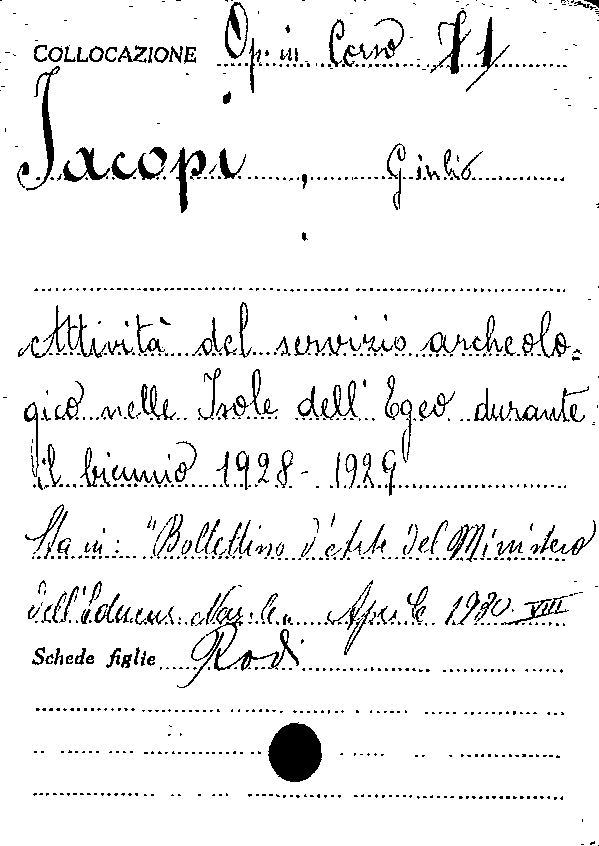 COLLOCAZIONE Op. in Corso
Jacopi, Giulio
Attività del servizio archeolo=
gico nelle Isole dell'Egeo durante
il biennio 1928-1929
Sta in: "Bollettino d'Arte del Ministero
dell'Educaz. Naz.le" Aprile 1930 VIII
Schede figlie Rodi